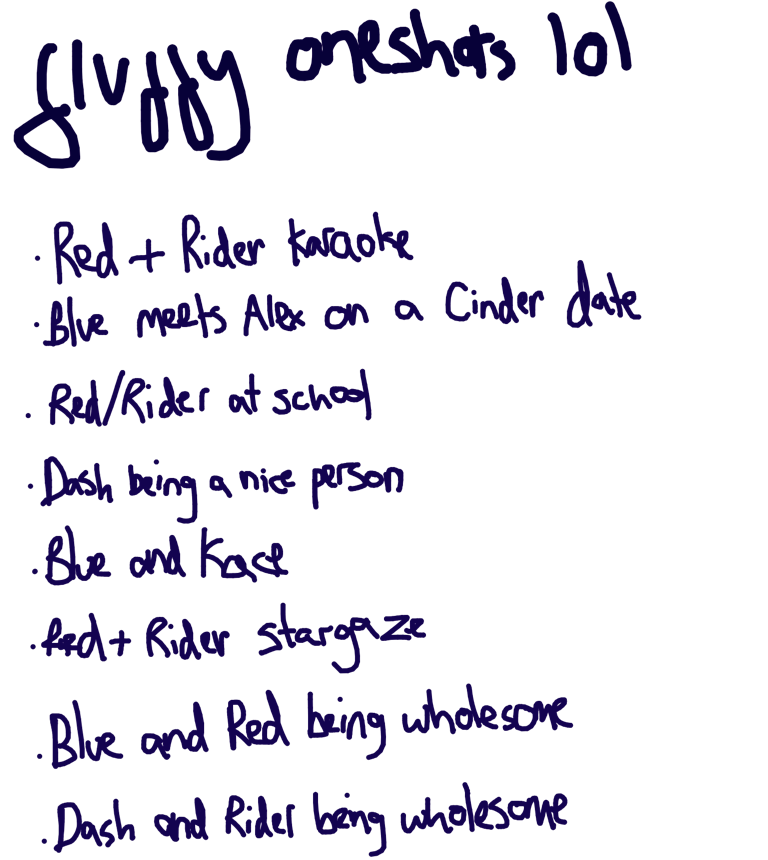 fluffy oneshots lol
· Red + Rider karaoke
· Blue meets Alex on a Cinder date
· Red/Rider at school
· Dash being a nice person
· Blue and Kace
· Red + Rider stargaze
· Blue and Red being wholesome
· Dash and Rider being wholesome